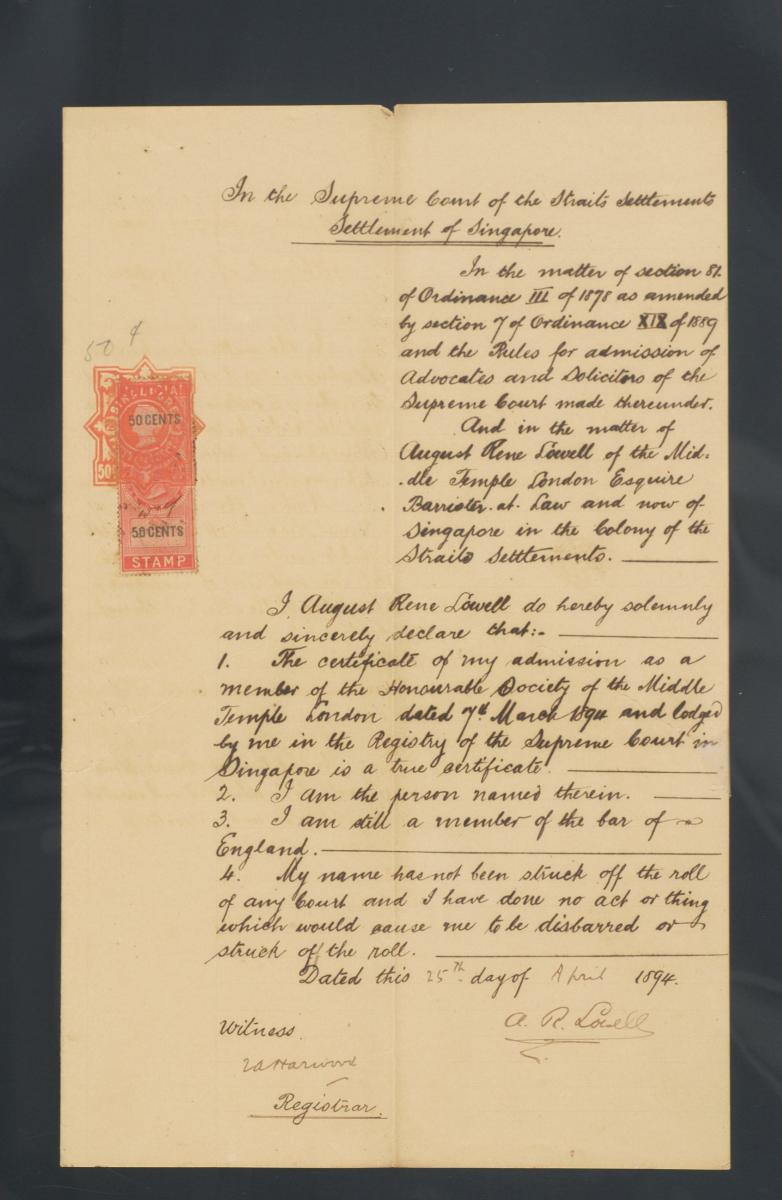 In the Supreme Court of the Straits Settlements
Settlement of Singapore.
In the matter of section 81.
of Ordinance III of 1878 as amended
by section 7 of Ordinance XIX of 1889
and the Rules for admission of
Advocates and Solicitors of the
Supreme Court made thereunder.
And in the matter of
August Rene Lowell of the Mid-
-dle Temple London Esquire
Barrister-at-Law and now of
Singapore in the Colony of the
Straits Settlements.
50 ¢
50 CENTS
50 CENTS
STAMP
I, August Rene Lowell do hereby solemnly
and sincerely declare that:-
1. The certificate of my admission as a
member of the Honourable Society of the Middle
Temple London dated 7th March 1894 and lodged
by me in the Registry of the Supreme Court in
Singapore is a true certificate.
2. I am the person named therein.
3. I am still a member of the bar of
England.
4. My name has not been struck off the roll
of any Court and I have done no act or thing
which would cause me to be disbarred or
struck off the roll.
Dated this 25th day of April 1894.
A. R. Lowell
Witness.
Harwood
Registrar.